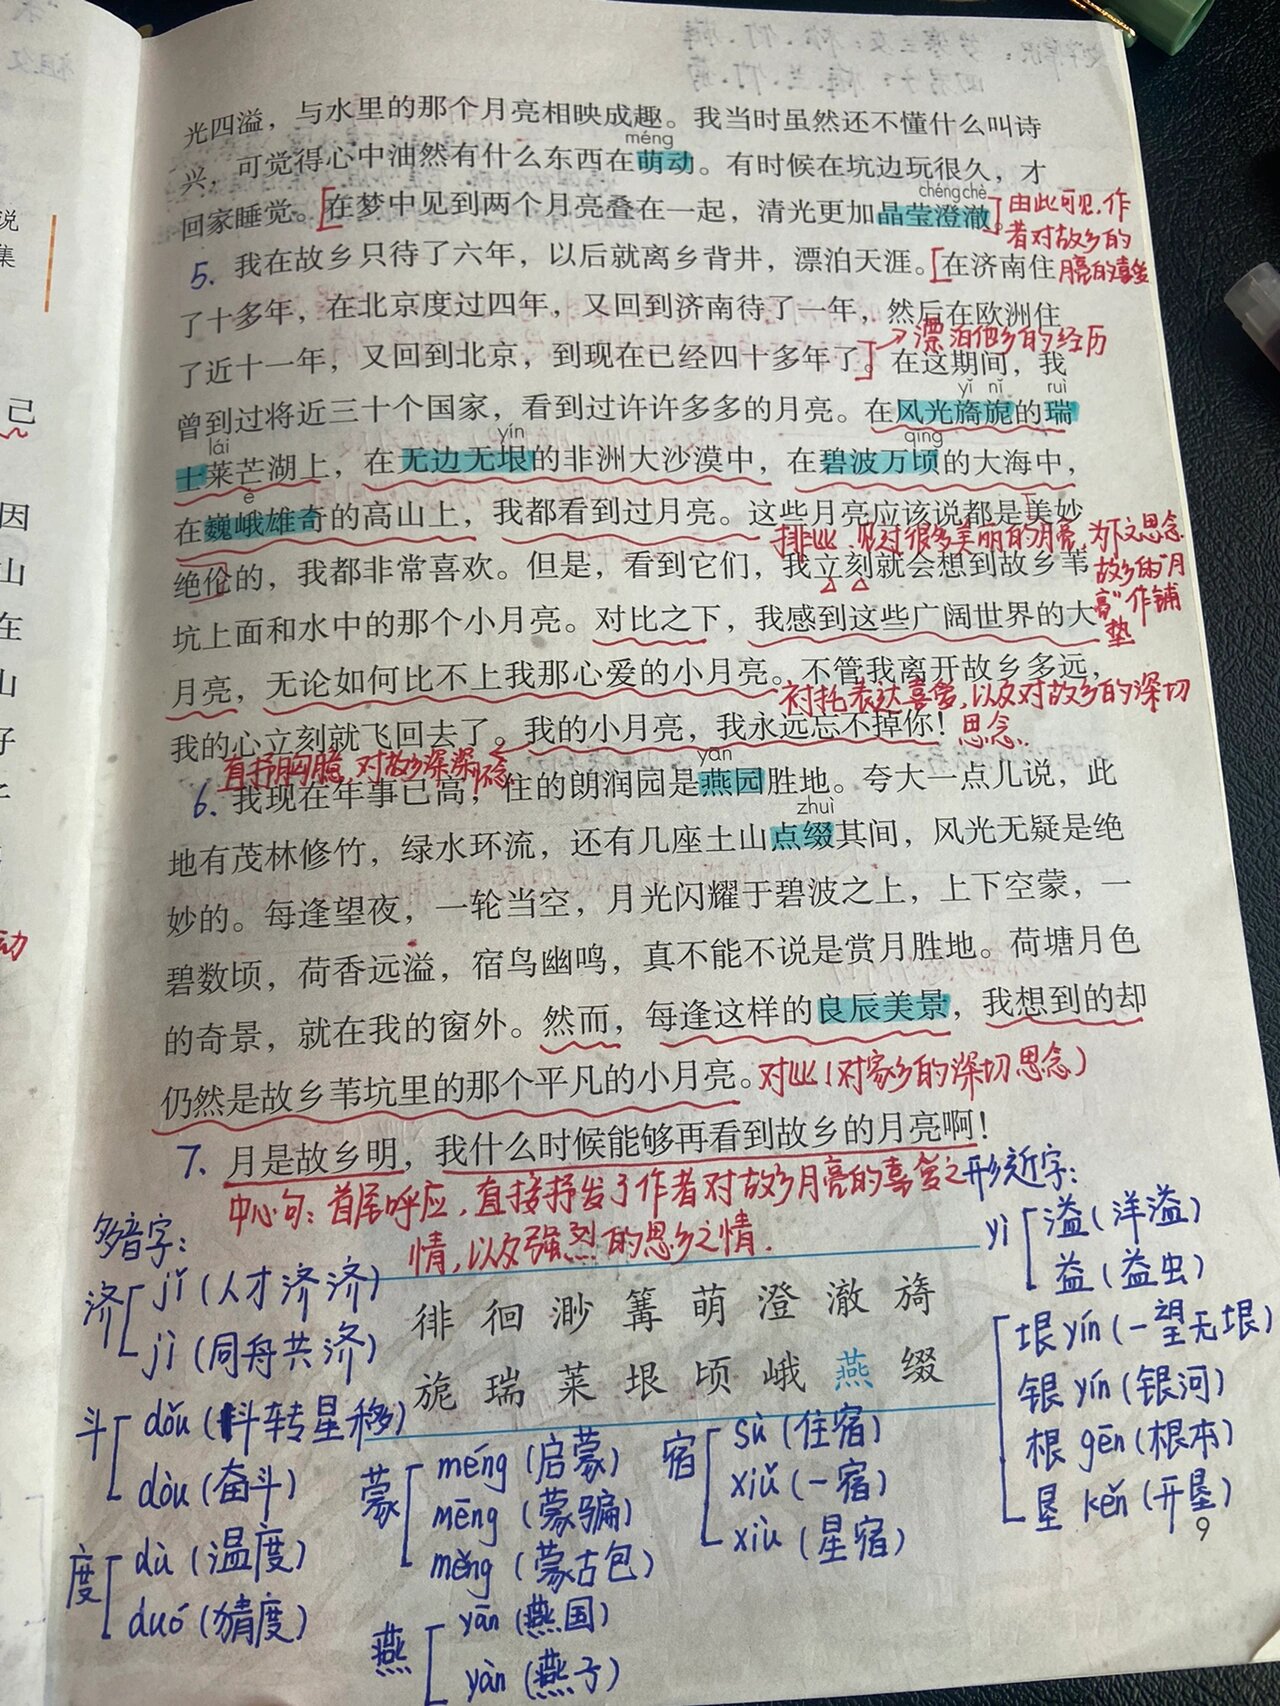 光四溢，与水里的那个月亮相映成趣。我当时虽然还不懂什么叫诗
méng
兴，可觉得心中油然有什么东西在萌动。有时候在坑边玩很久，才
chéng chè
回家睡觉。在梦中见到两个月亮叠在一起，清光更加晶莹澄澈。
由此可见，作
者对故乡的
月亮的喜爱
5. 我在故乡只待了六年，以后就离乡背井，漂泊天涯。在济南住
了十多年，在北京度过四年，又回到济南待了一年，然后在欧洲住
→漂泊他乡的经历
了近十一年，又回到北京，到现在已经四十多年了。在这期间，我
yǐ nǐ ruì
曾到过将近三十个国家，看到过许许多多的月亮。在风光旖旎的瑞
lái yín qǐng
士莱芒湖上，在无边无垠的非洲大沙漠中，在碧波万顷的大海中，
é
在巍峨雄奇的高山上，我都看到过月亮。这些月亮应该说都是美妙
排比，见过很多美丽的月亮，为下文思念
故乡的"月
亮"作铺
垫
绝伦的，我都非常喜欢。但是，看到它们，我立刻就会想到故乡苇
坑上面和水中的那个小月亮。对比之下，我感到这些广阔世界的大
月亮，无论如何比不上我那心爱的小月亮。不管我离开故乡多远，
衬托表达喜爱，以及对故乡的深切
思念.
我的心立刻就飞回去了。我的小月亮，我永远忘不掉你！
直抒胸臆，对故乡深深怀念
yān
6. 我现在年事已高，住的朗润园是燕园胜地。夸大一点儿说，此
zhuì
地有茂林修竹，绿水环流，还有几座土山点缀其间，风光无疑是绝
妙的。每逢望夜，一轮当空，月光闪耀于碧波之上，上下空蒙，一
碧数顷，荷香远溢，宿鸟幽鸣，真不能不说是赏月胜地。荷塘月色
的奇景，就在我的窗外。然而，每逢这样的良辰美景，我想到的却
仍然是故乡苇坑里的那个平凡的小月亮。
对比（对家乡的深切思念）
7. 月是故乡明，我什么时候能够再看到故乡的月亮啊！
中心句：首尾呼应，直接抒发了作者对故乡月亮的喜爱之
情，以及强烈的思乡之情.
徘 徊 渺 篝 萌 澄 澈 旖
旎 瑞 莱 垠 顷 峨 燕 缀
多音字：
济 jǐ（人才济济）
jì（同舟共济）
斗 dǒu（斗转星移）
dòu（奋斗）
度 dù（温度）
duó（猜度）
蒙 méng（启蒙）
mēng（蒙骗）
měng（蒙古包）
燕 yān（燕国）
yàn（燕子）
宿 sù（住宿）
xiǔ（一宿）
xiù（星宿）
形近字：
yì 溢（洋溢）
益（益虫）
垠 yín（一望无垠）
银 yín（银河）
根 gēn（根本）
垦 kěn（开垦）
9
说
集
己
因
山
在
山
子
动